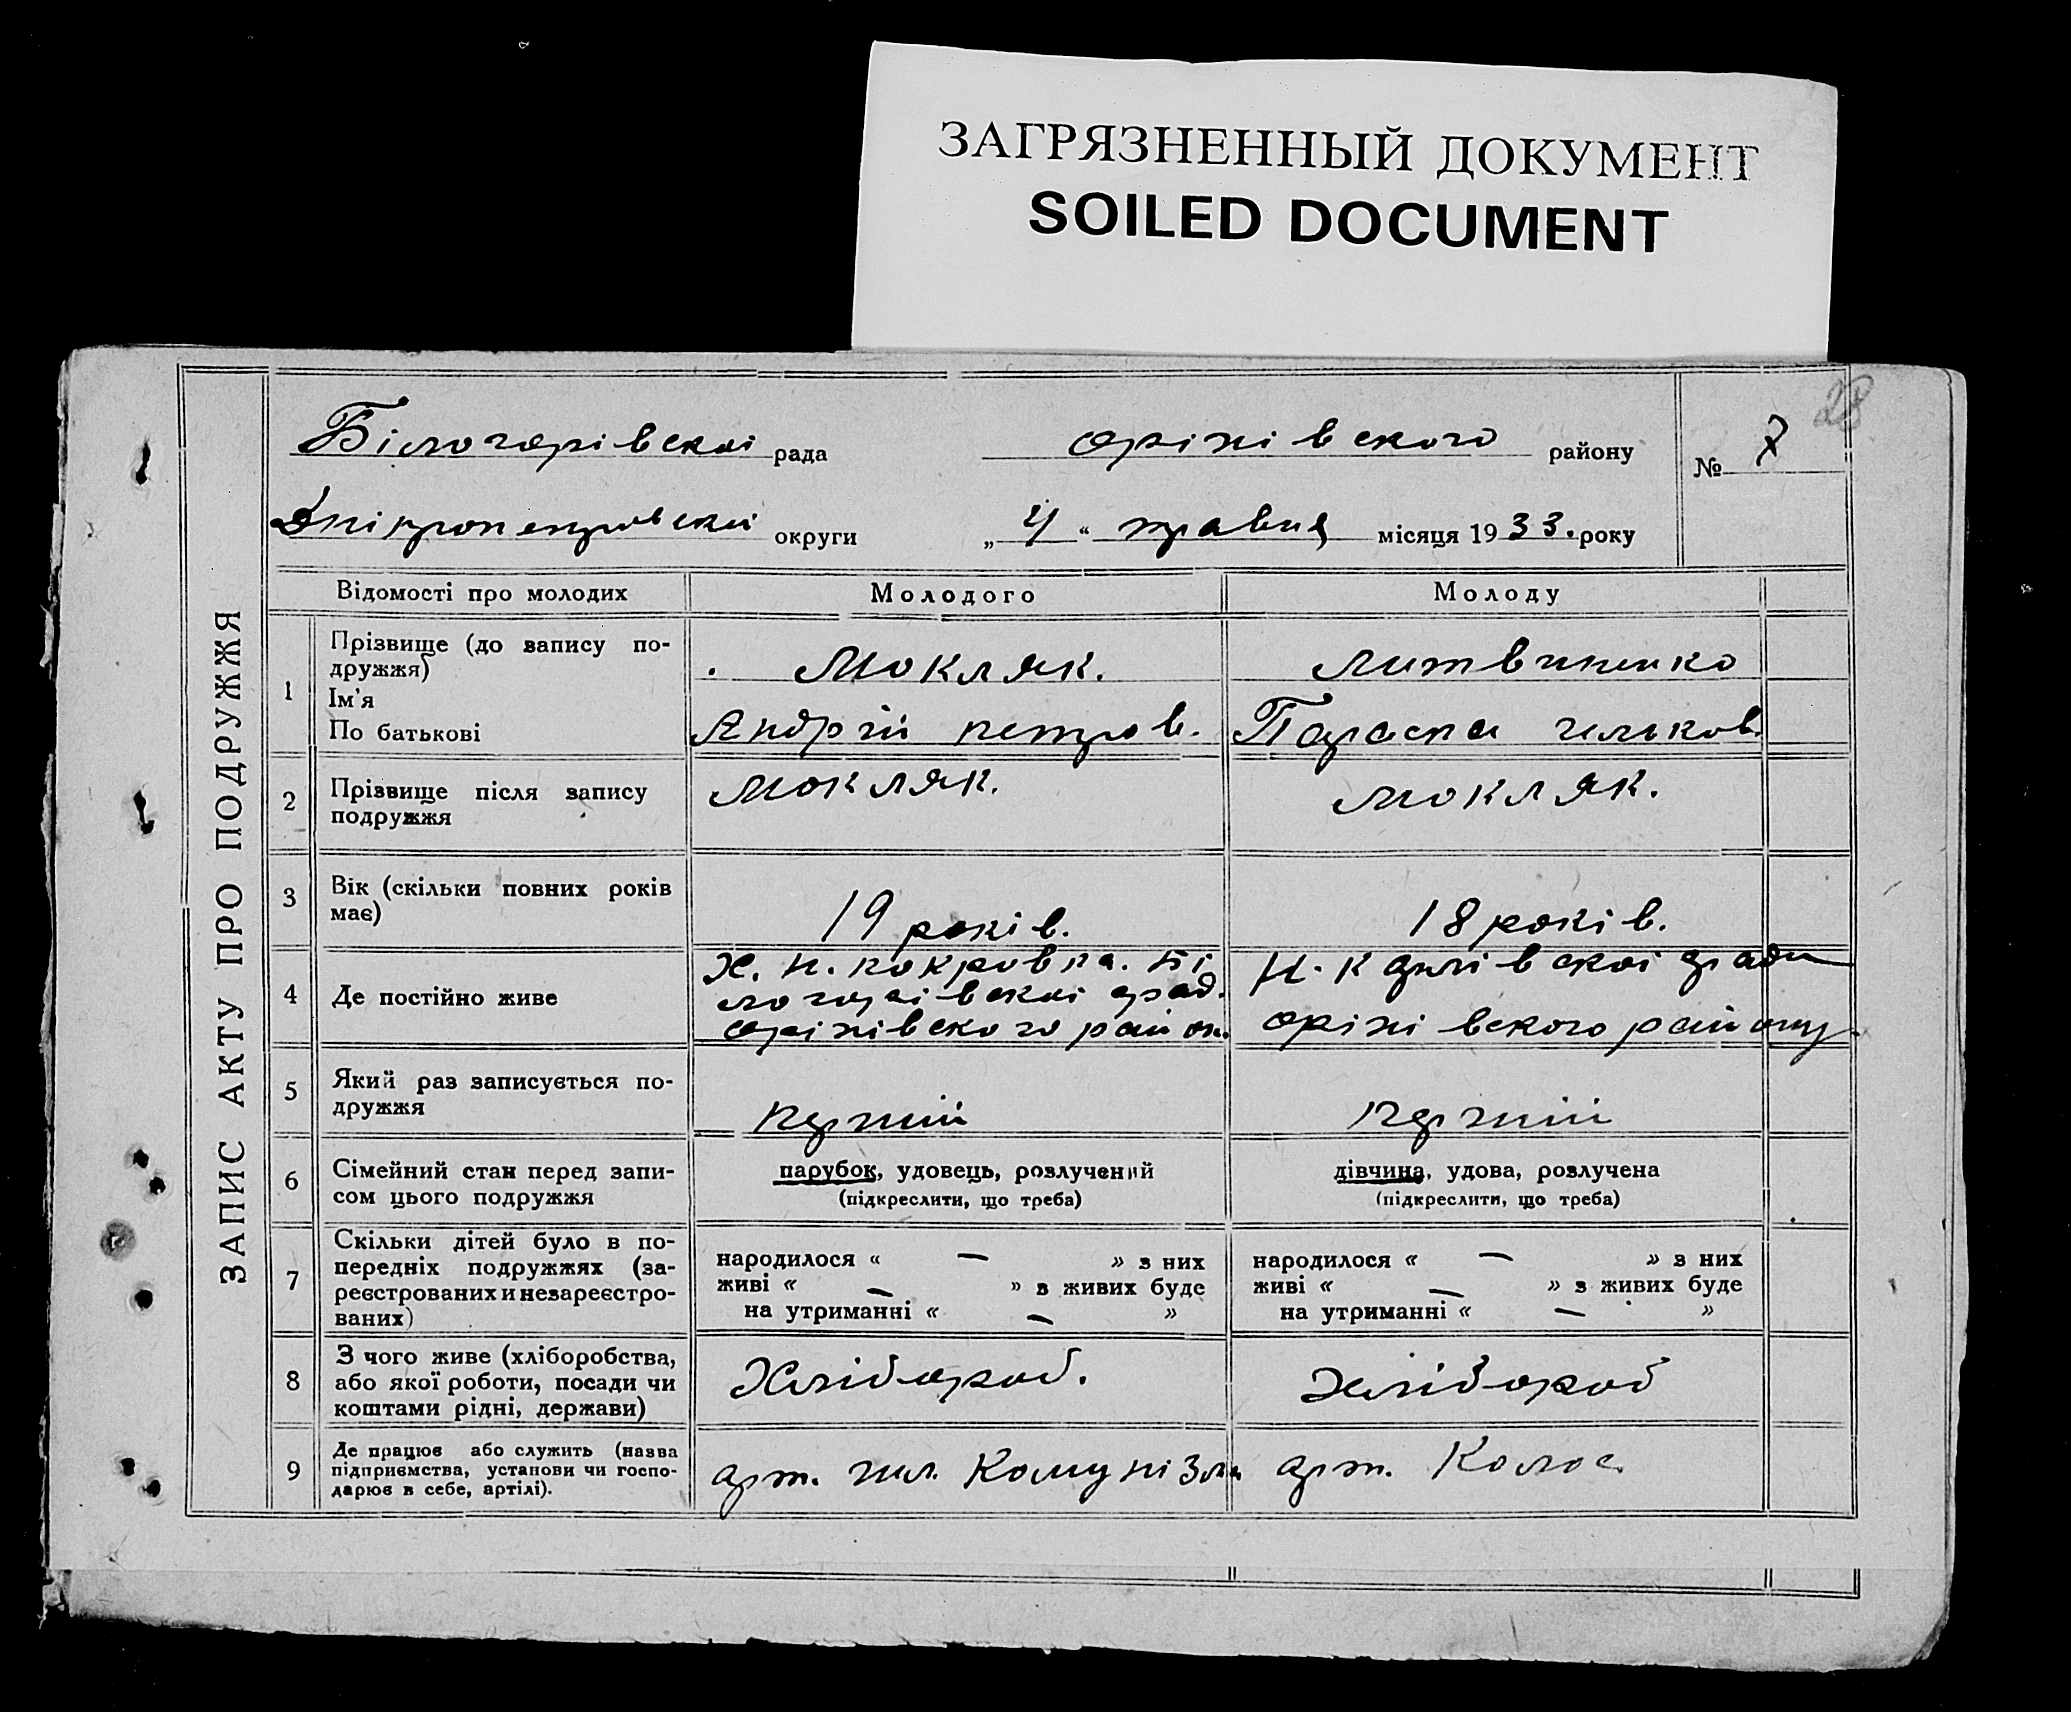 ЗАГРЯЗНЕННЫЙ ДОКУМЕНТ
SOILED DOCUMENT
28
ЗАПИС АКТУ ПРО ПОДРУЖЖЯ
Білогорівскоі рада оріхівського району № 7
Дніпропетровскоі округи „ 4 “ травня місяця 1933. року
Відомості про молодих Молодого Молоду
1 Прізвище (до запису по-
дружжя) Мокляк. Литвиненко
Ім'я
По батькові Андрій петров. Параска
2 Прізвище після запису
подружжя Мокляк. Мокляк.
3 Вік (скільки повних років
має) 19 років. 18 років.
4 Де постійно живе
Х. Н. покровка. Бі
логорівскоі рад. ради
оріхівского район. оріхівского району.
5 Який раз записується по-
дружжя перший перший
6 Сімейний стан перед запи-
сом цього подружжя
парубок, удовець, розлучений дівчина, удова, розлучена
(підкреслити, що треба) (підкреслити, що треба)
7 Скільки дітей було в по-
передніх подружжях (за-
реєстрованих и незареєстро-
ваних)
народилося « — » з них народилося « — » з них
живі « — » з живих буде живі « — » з живих буде
на утриманні « — » на утриманні « — »
8 З чого живе (хліборобства,
або якої роботи, посади чи
коштами рідні, держави)
Хлібороб. Хлібороб
9 Де працює або служить (назва
підприємства, установи чи госпо-
дарює в себе, артілі).
арт. шл. Комунізма арт. Колос.